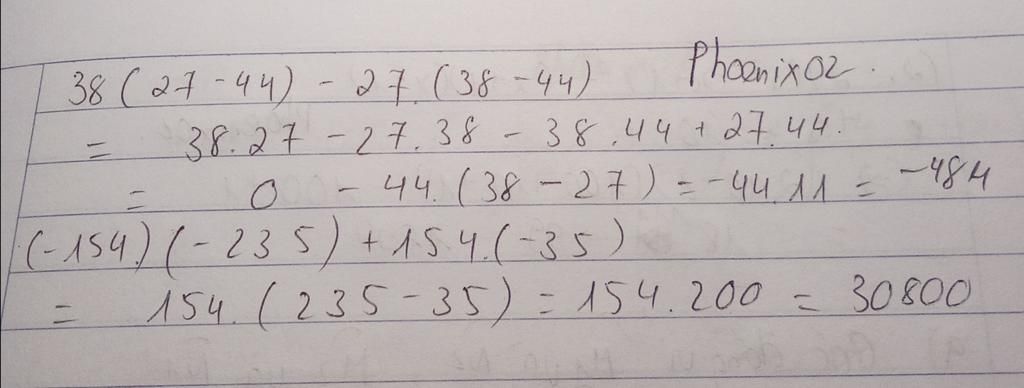 38(27-44) - 27.(38-44) Phoenix02.
= 38.27 - 27.38 - 38.44 + 27.44.
= 0 - 44.(38-27) = -44.11 = -484
(-154)(-235) + 154.(-35)
= 154.(235-35) = 154.200 = 30800